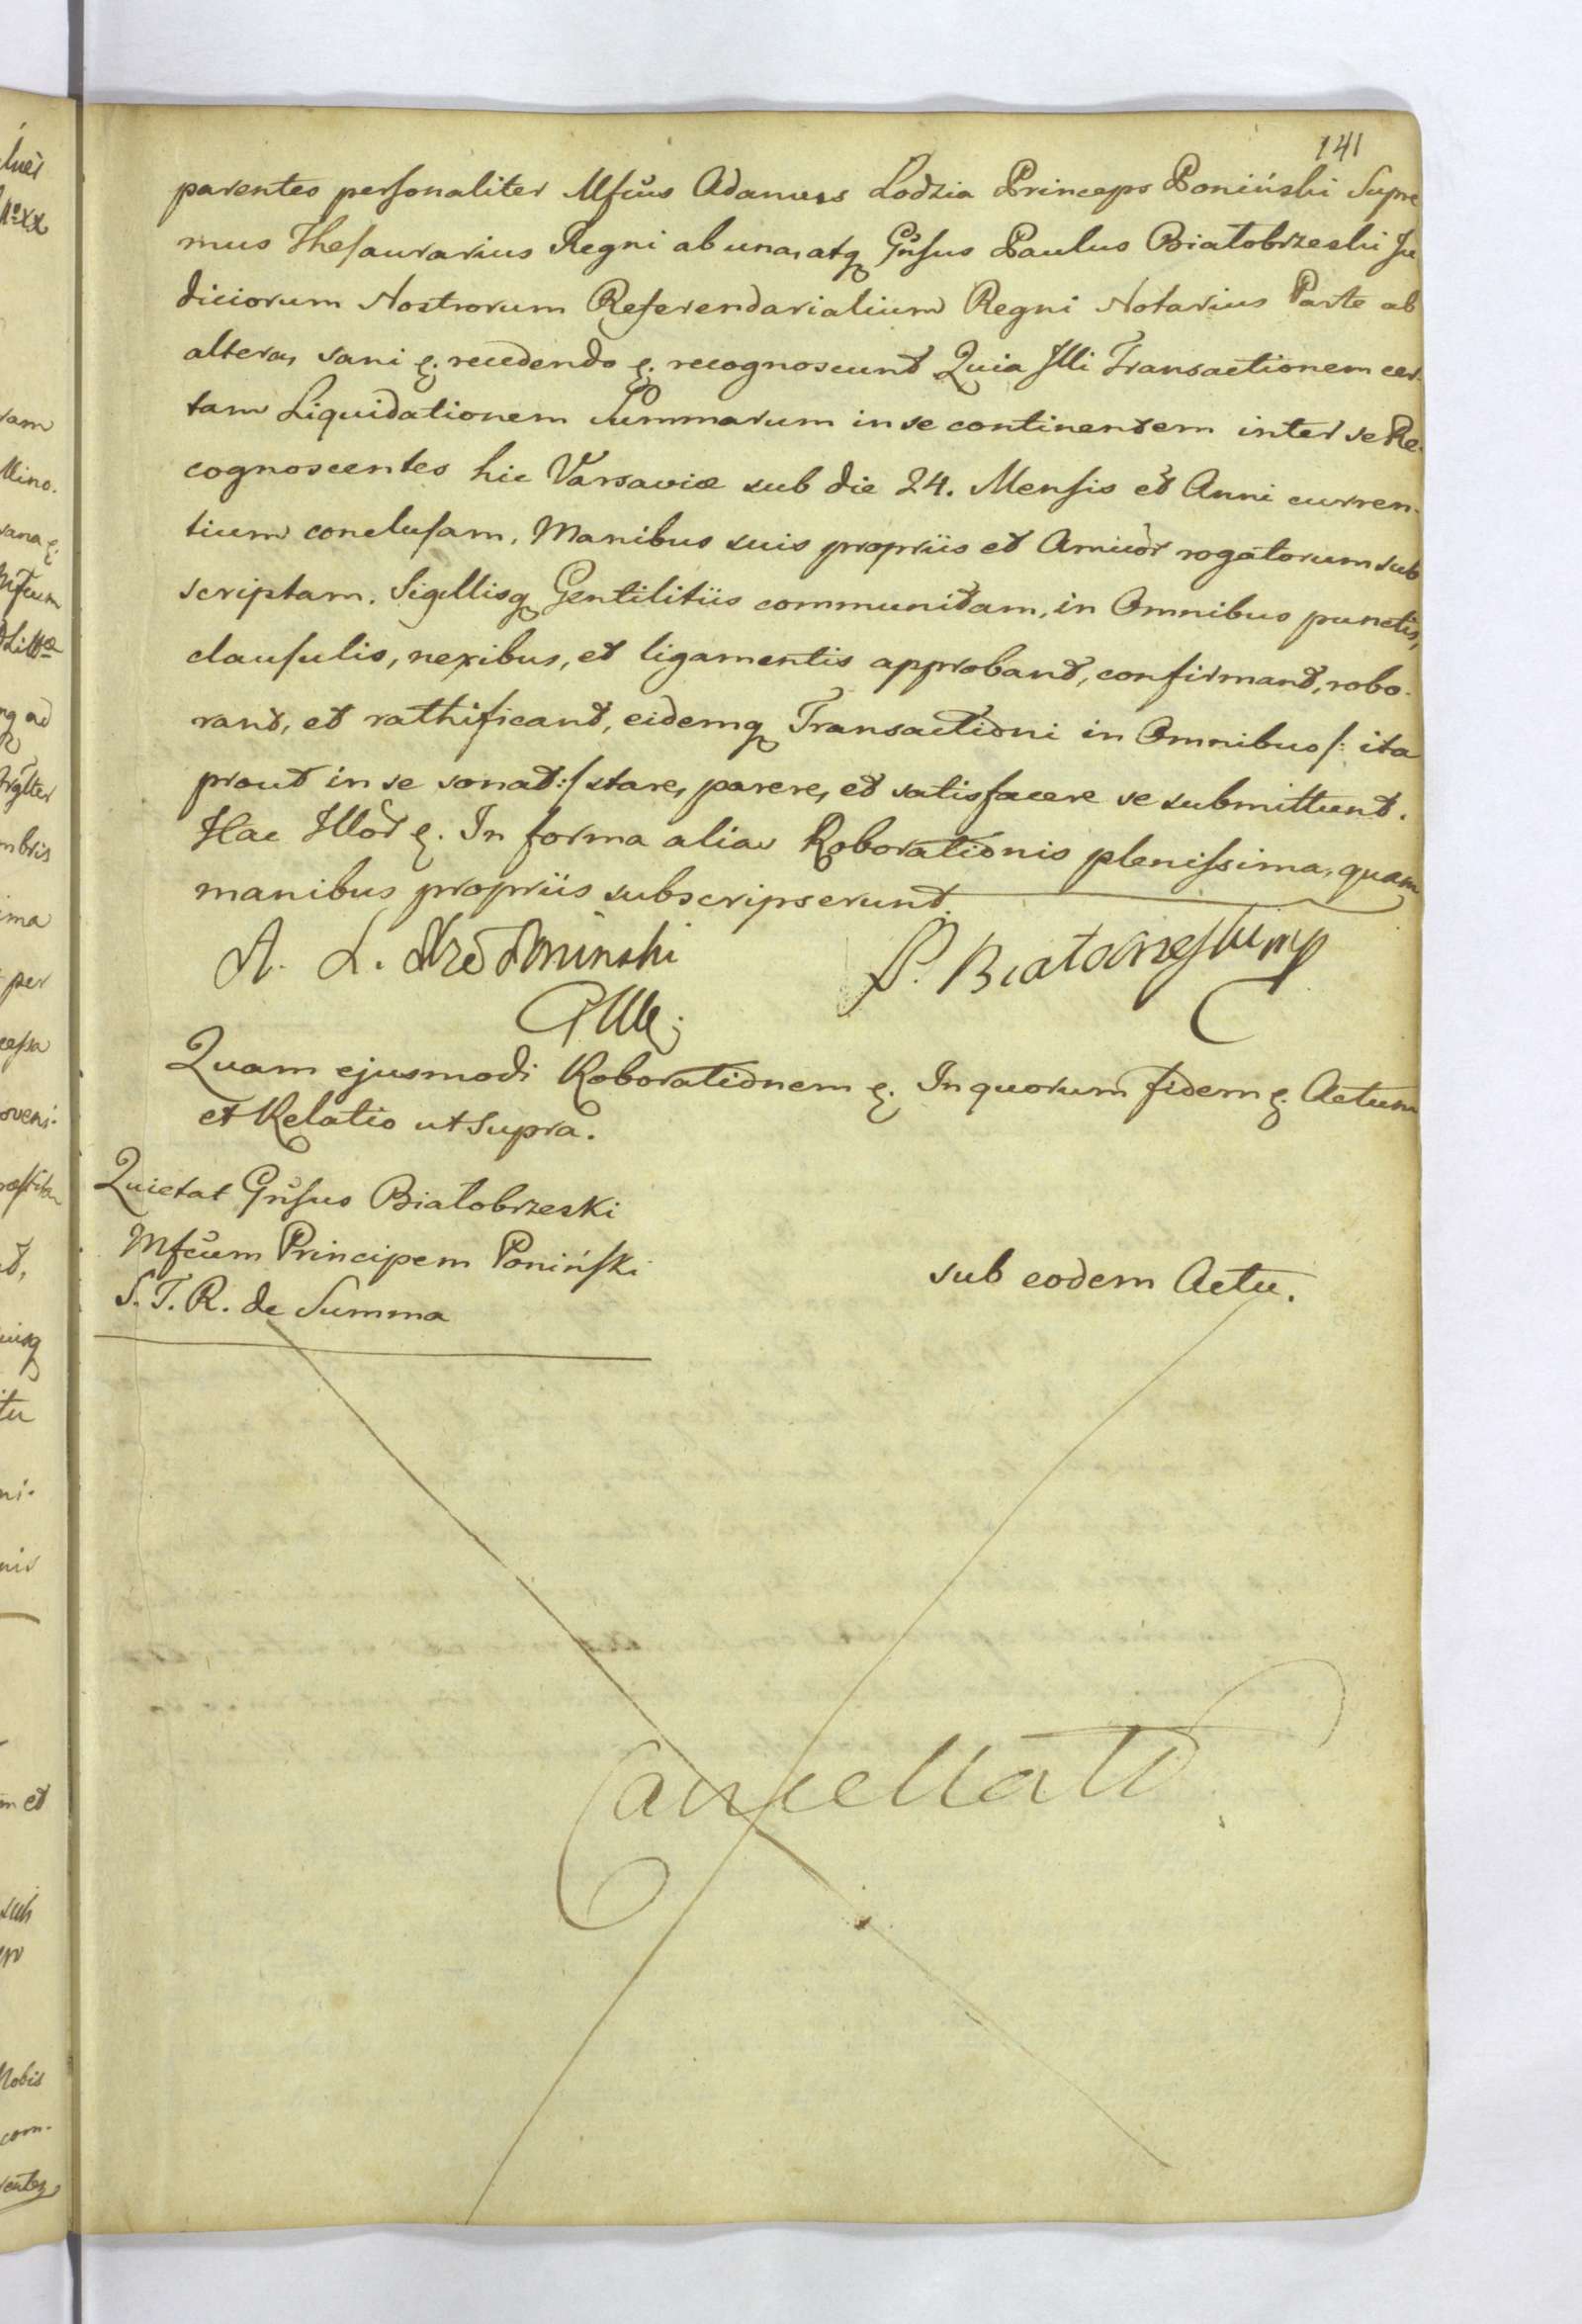 141
parentes personaliter Mfcus Adamus Lodzia Princeps Poniński Supre
mus Thesaurarius Regni ab una, atq Gnsus Paulus Białobrzeski Ju
diciorum Nostrorum Referendarialium Regni Notarius Parte ab
altera, sani &. recedendo &. recognoscunt Quia Illi Transactionem cer-
tam Liquidationem Summarum in se continentem inter se Re-
cognoscentes hic Varsaviæ sub die 24. Mensis et Anni curren-
tium conclusam, Manibus suis propriis et Amicor rogatorum sub
scriptam, Sigillisq Gentilitiis communitam, in Omnibus punctis,
clausulis, nexibus, et ligamentis approbant, confirmant, robo-
rant, et rathificant, eidemq Transactioni in Omnibus /: ita
prout in se sonat :/ stare, parere, et satisfacere se submittunt.
Hac Illor &. In forma alia Roborationis plenissima, quam
manibus propriis subscripserunt.
A. L. Poniński
P. Białobrzeski mp
Quam ejusmodi Roborationem &. In quorum fidem &. Actum
et Relatio ut supra.
Quietat Gnsus Białobrzeski
Mfcum Principem Poniński
S. T. R. de Summa
sub eodem Actu.
Cancellat